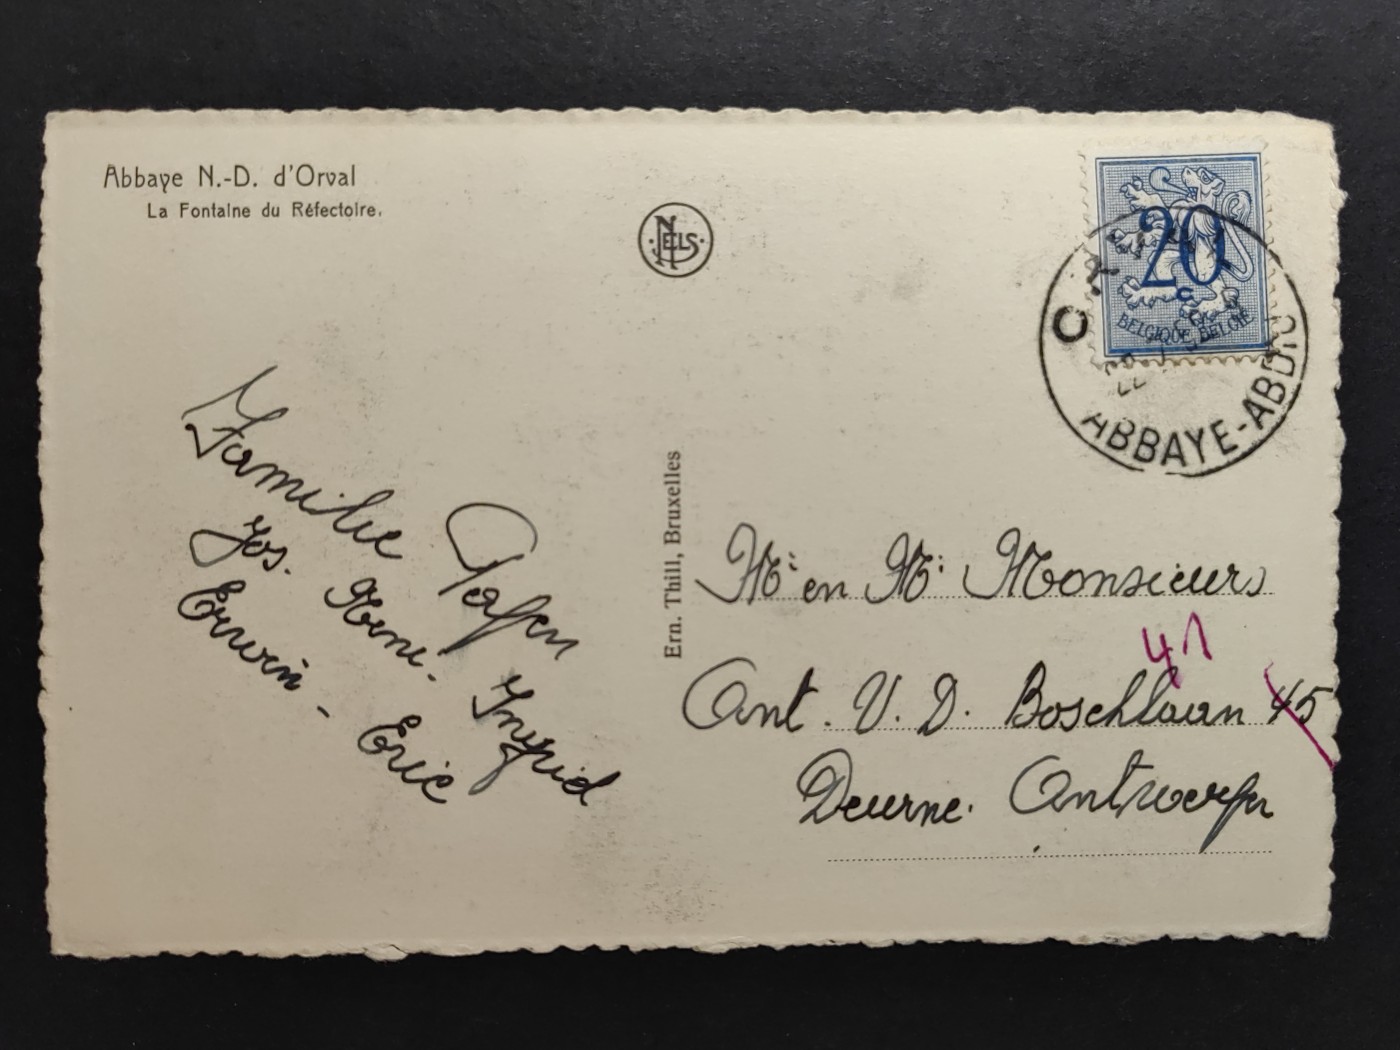 Abbaye N.-D. d'Orval
La Fontaine du Réfectoire.
NELS
20
c
BELGIQUE BELGIË
ABBAYE-ABDIJ
Ern. Thill, Bruxelles
Familie
Jos. Erwin - Eric
Ingrid
Mr en Mr Monsieurs
41
Ant. V. D. Boschlaan 45
Deurne. Antwerpen